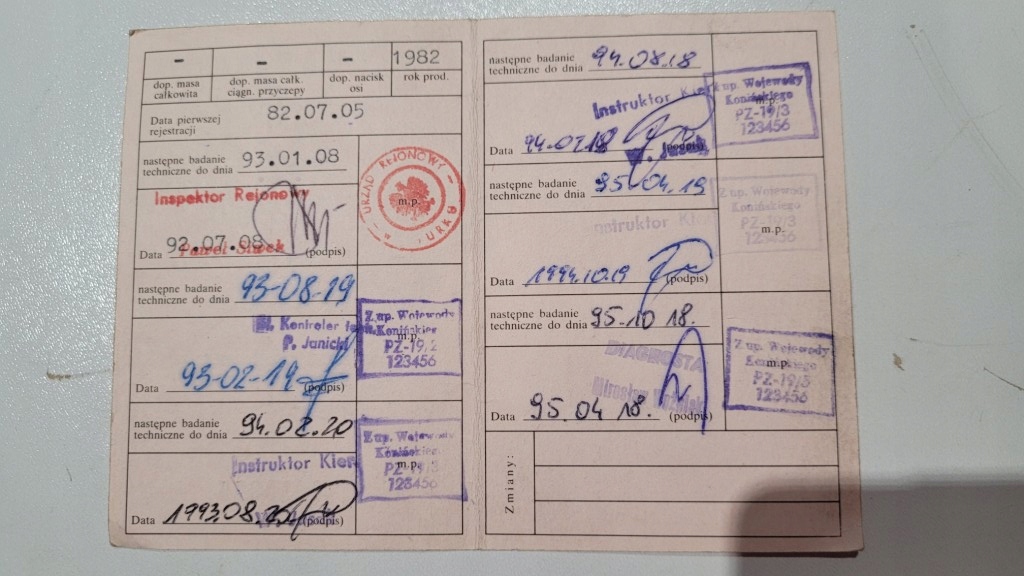 - - - 1982
dop. masa całkowita
dop. masa całk. ciągn. przyczepy
dop. nacisk osi
rok prod.
Data pierwszej rejestracji 82.07.05
następne badanie techniczne do dnia 93.01.08
Inspektor Rejonowy
URZĄD REJONOWY
m.p.
Data 92.07.08 (podpis)
następne badanie techniczne do dnia 93-08-19
Kontroler
P. Janicki
Z up. Wojewody
Konińskiego
m.p.
PZ-19/2
123456
Data 93-02-19 (podpis)
następne badanie techniczne do dnia 94.02.20
Instruktor Kier
Z up. Wojewody
Konińskiego
m.p.
PZ-19/3
123456
Data 1993.08.20 (podpis)
następne badanie techniczne do dnia 94.08.18
Instruktor Kier
Z up. Wojewody
Konińskiego
m.p.
PZ-19/3
123456
Data 94.02.18 (podpis)
następne badanie techniczne do dnia 95.04.19
Instruktor Kier
Z up. Wojewody
Konińskiego
PZ-19/3
m.p.
123456
Data 1994.10.19 (podpis)
następne badanie techniczne do dnia 95.10 18.
DIAGNOSTA
Mirosław
Z up. Wojewody
Konińskiego
m.p.
PZ-19/3
123456
Data 95.04 18. (podpis)
Zmiany: